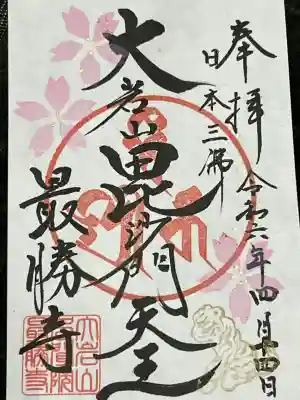 奉拝
令和六年四月十四日
日本三佛
大岩山毘沙門天王
最勝寺
大岩山
最勝寺